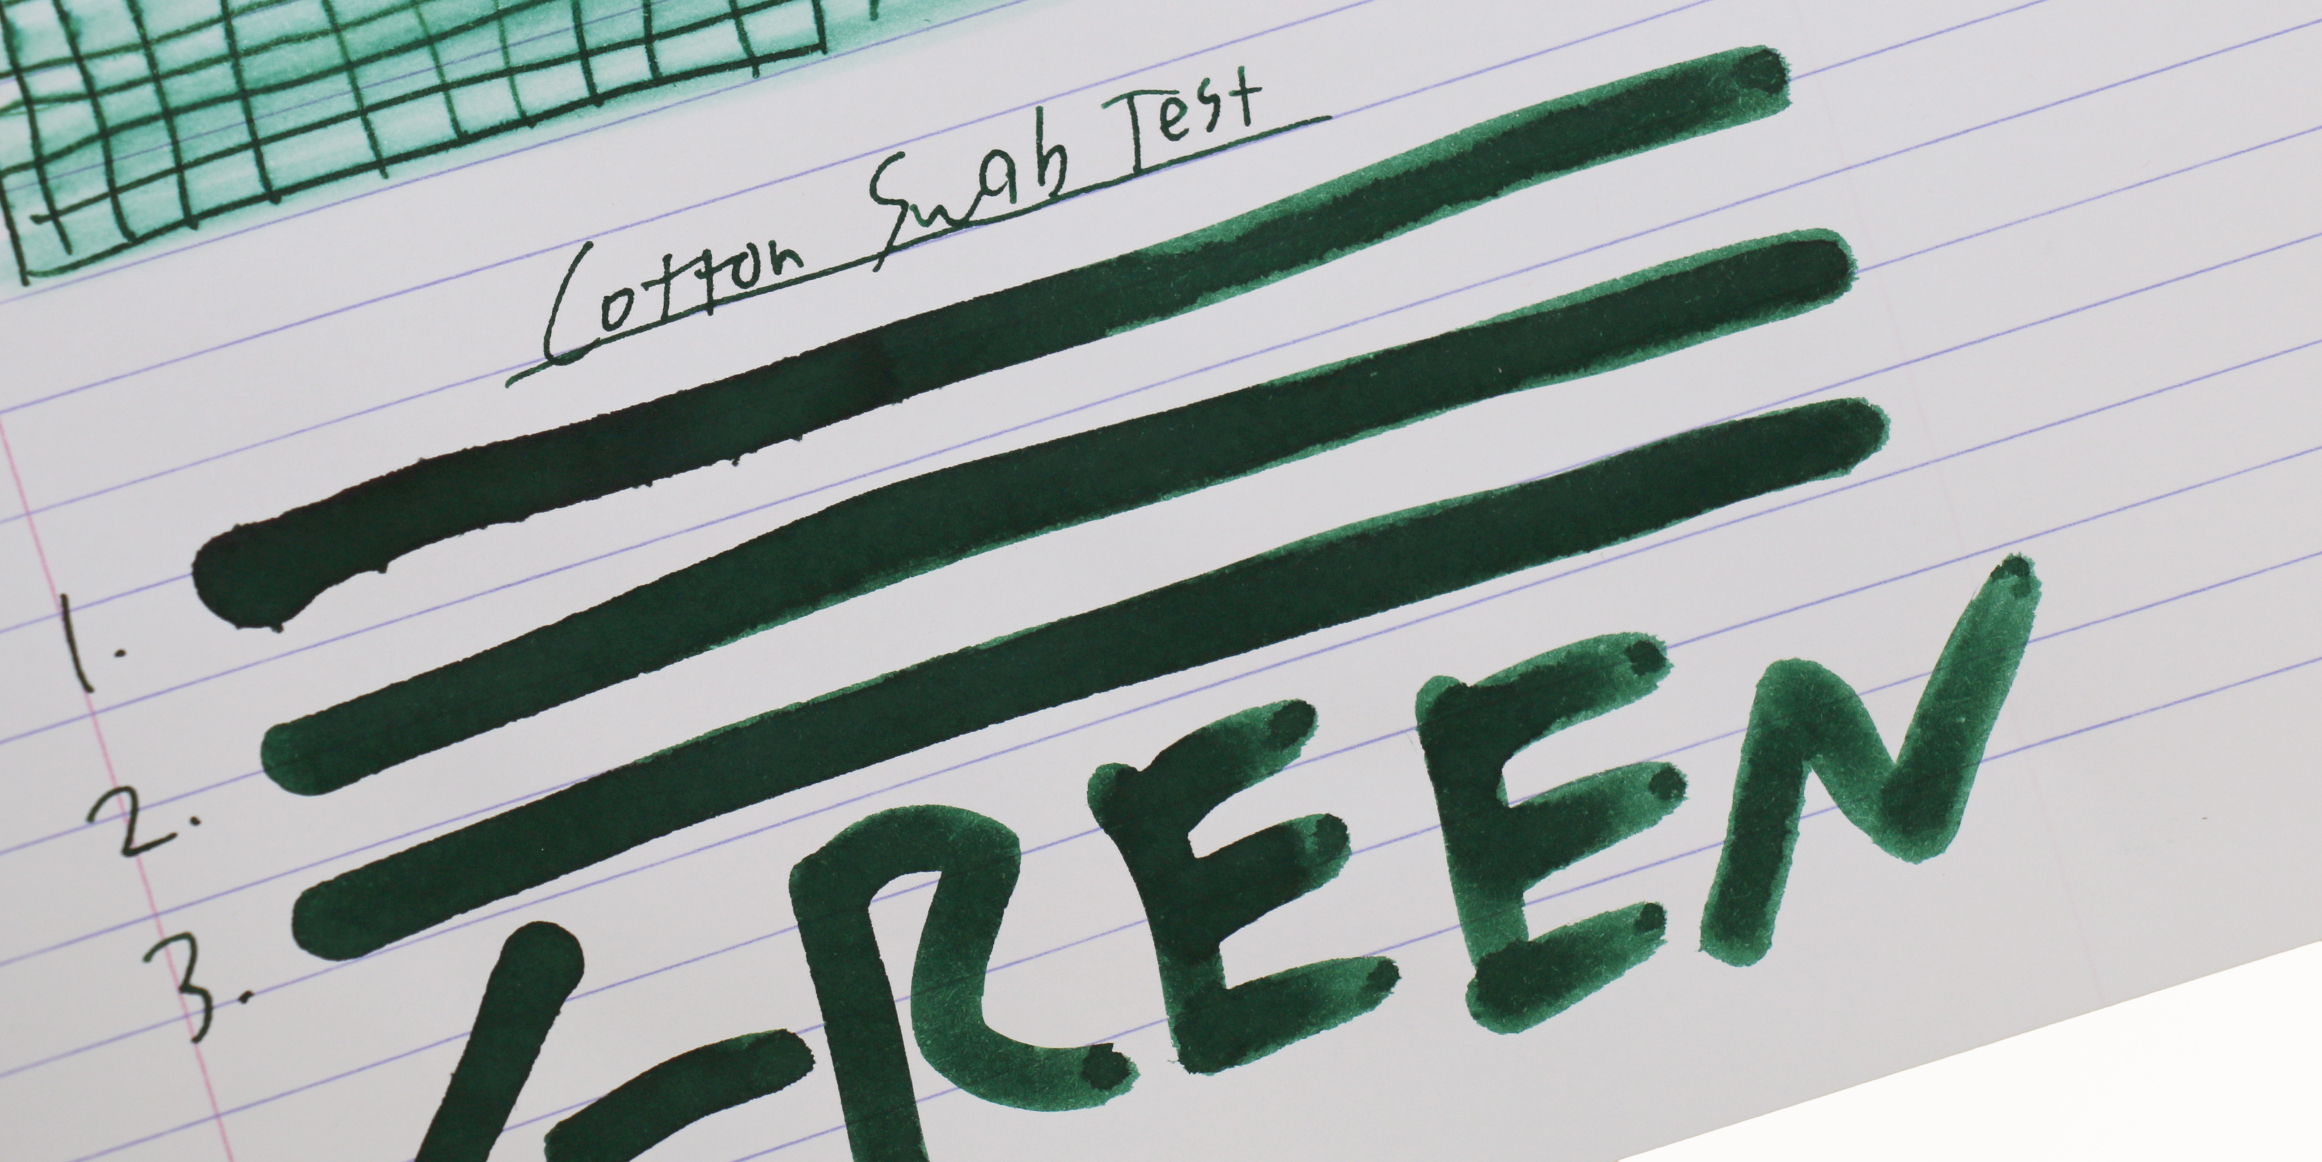 Cotton Swab Test
1.
2.
3.
GREEN